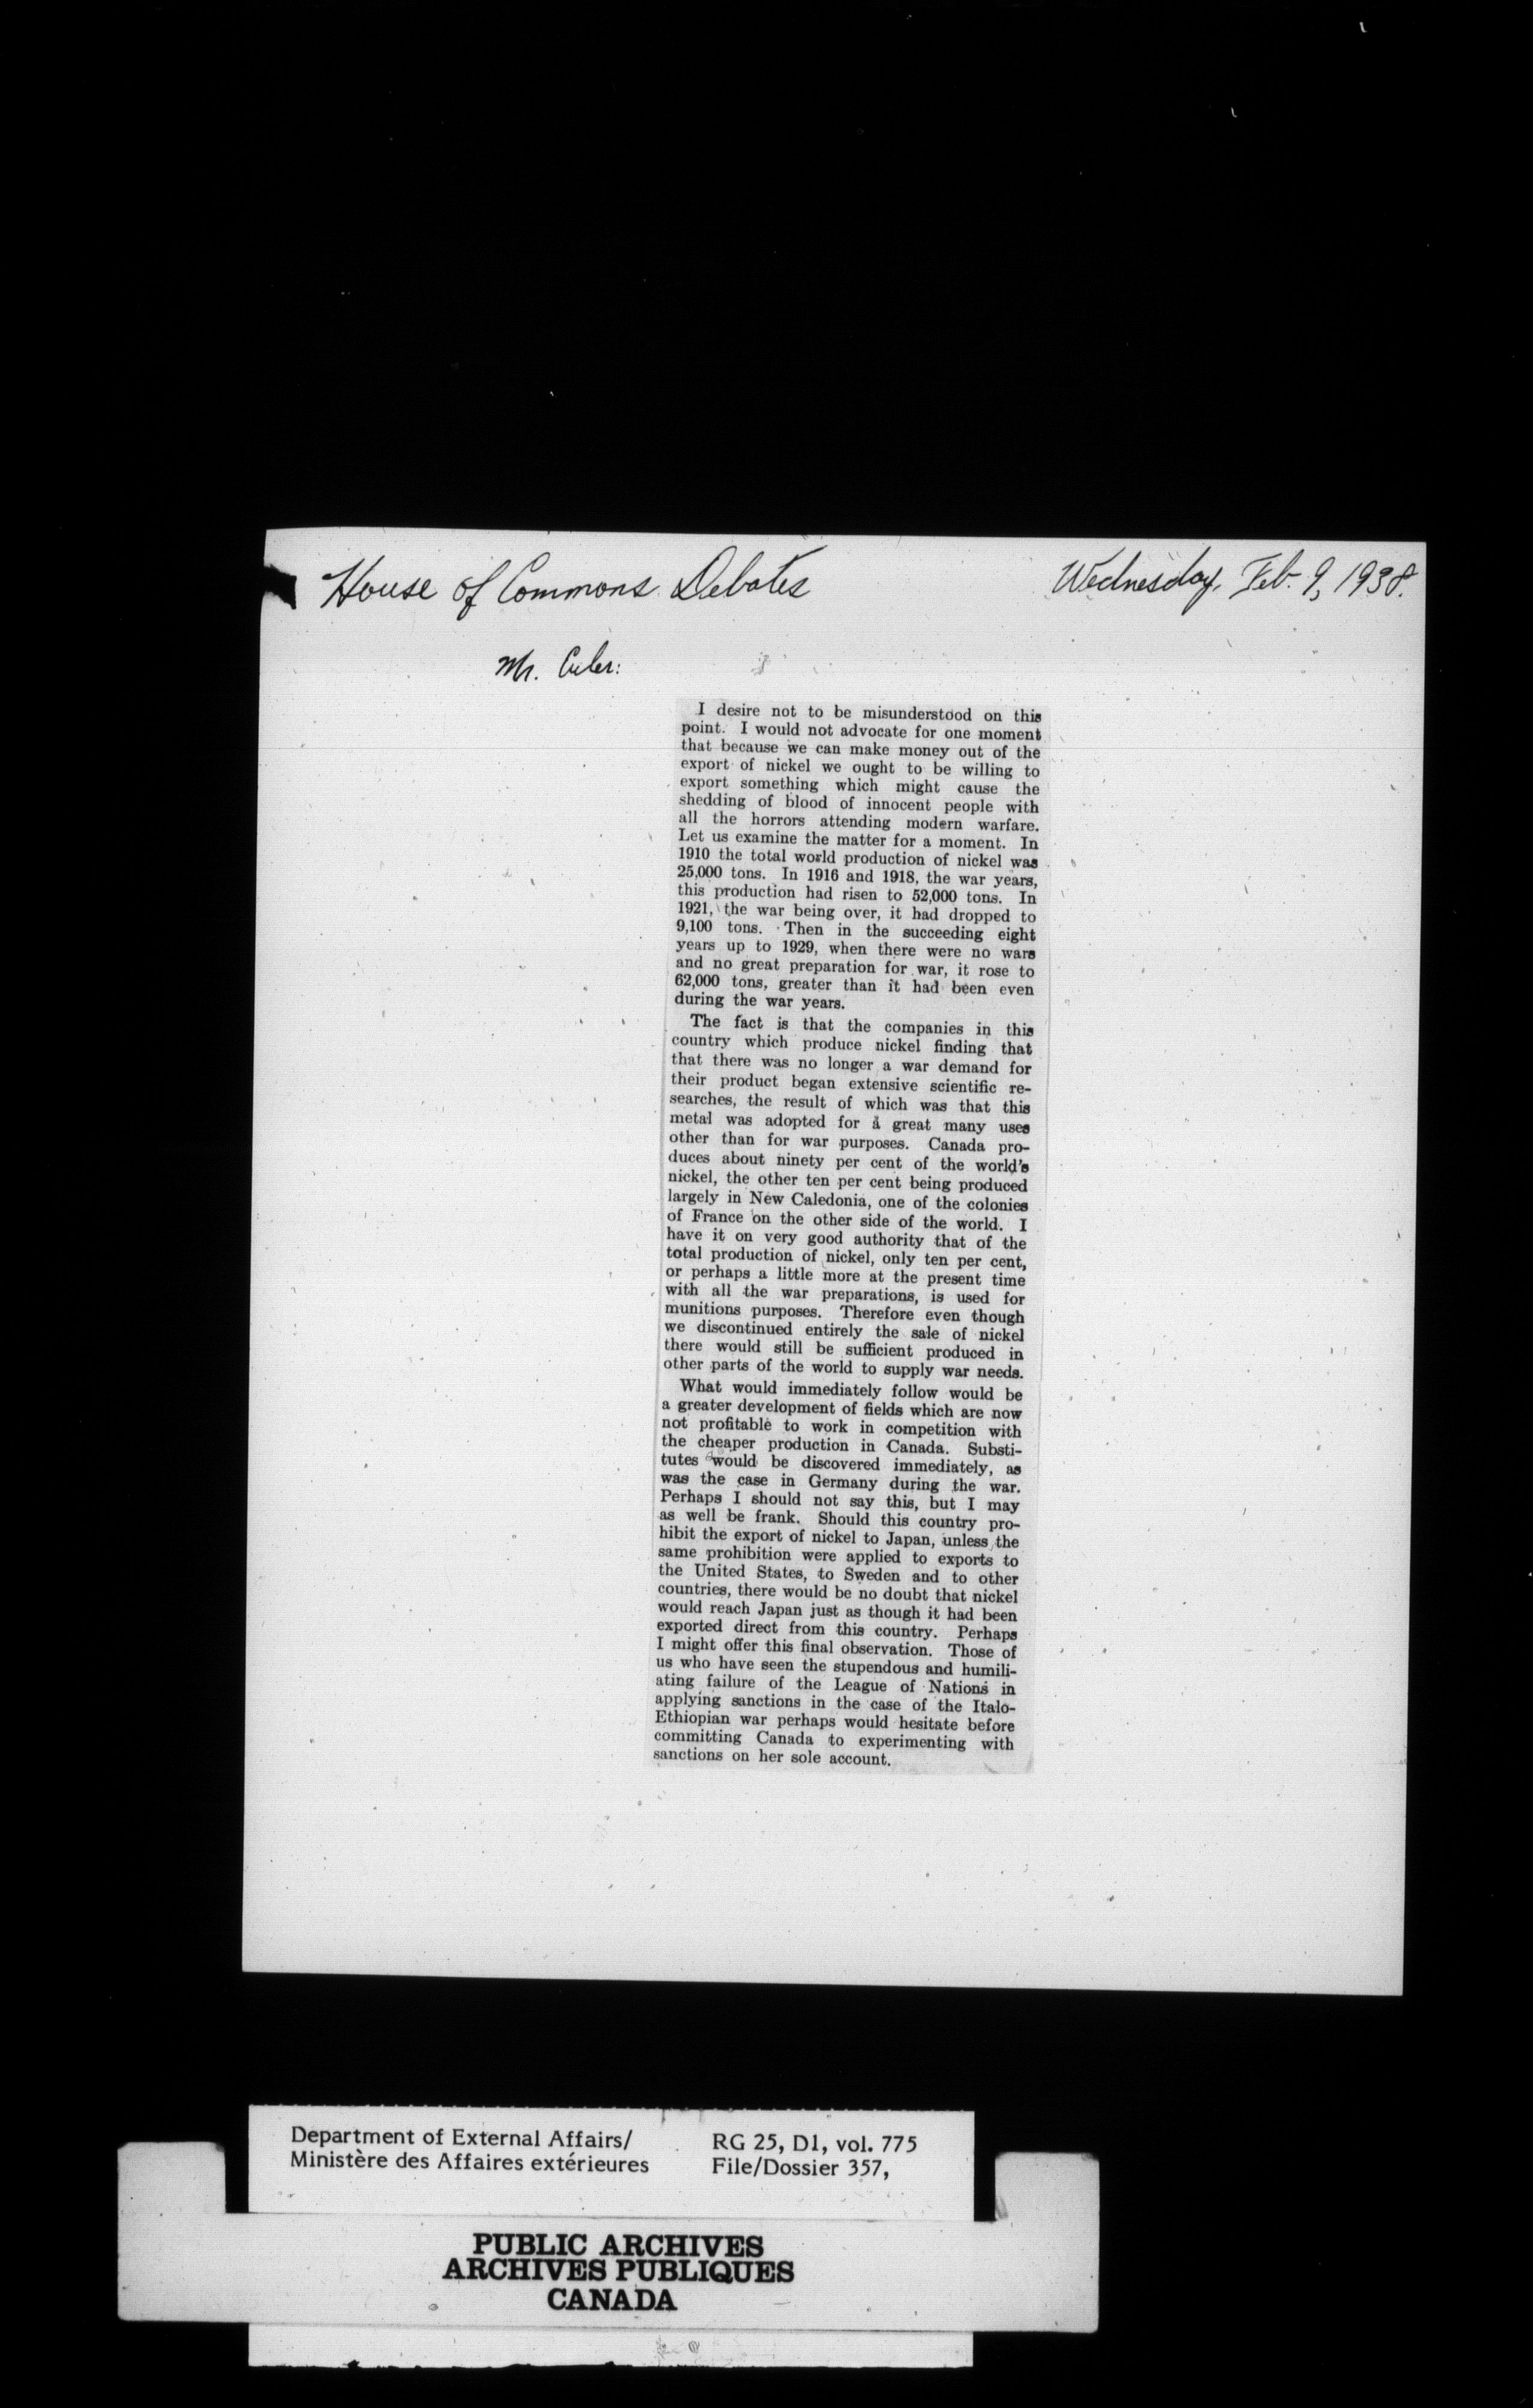 House of Commons Debates
Wednesday, Feb. 9, 1938.
Mr. Euler:
I desire not to be misunderstood on this
point. I would not advocate for one moment
that because we can make money out of the
export of nickel we ought to be willing to
export something which might cause the
shedding of blood of innocent people with
all the horrors attending modern warfare.
Let us examine the matter for a moment. In
1910 the total world production of nickel was
25,000 tons. In 1916 and 1918, the war years,
this production had risen to 52,000 tons. In
1921, the war being over, it had dropped to
9,100 tons. Then in the succeeding eight
years up to 1929, when there were no wars
and no great preparation for war, it rose to
62,000 tons, greater than it had been even
during the war years.
The fact is that the companies in this
country which produce nickel finding that
that there was no longer a war demand for
their product began extensive scientific re-
searches, the result of which was that this
metal was adopted for a great many uses
other than for war purposes. Canada pro-
duces about ninety per cent of the world's
nickel, the other ten per cent being produced
largely in New Caledonia, one of the colonies
of France on the other side of the world. I
have it on very good authority that of the
total production of nickel, only ten per cent,
or perhaps a little more at the present time
with all the war preparations, is used for
munitions purposes. Therefore even though
we discontinued entirely the sale of nickel
there would still be sufficient produced in
other parts of the world to supply war needs.
What would immediately follow would be
a greater development of fields which are now
not profitable to work in competition with
the cheaper production in Canada. Substi-
tutes would be discovered immediately, as
was the case in Germany during the war.
Perhaps I should not say this, but I may
as well be frank. Should this country pro-
hibit the export of nickel to Japan, unless the
same prohibition were applied to exports to
the United States, to Sweden and to other
countries, there would be no doubt that nickel
would reach Japan just as though it had been
exported direct from this country. Perhaps
I might offer this final observation. Those of
us who have seen the stupendous and humili-
ating failure of the League of Nations in
applying sanctions in the case of the Italo-
Ethiopian war perhaps would hesitate before
committing Canada to experimenting with
sanctions on her sole account.
Department of External Affairs/
Ministère des Affaires extérieures
RG 25, D1, vol. 775
File/Dossier 357,
PUBLIC ARCHIVES
ARCHIVES PUBLIQUES
CANADA